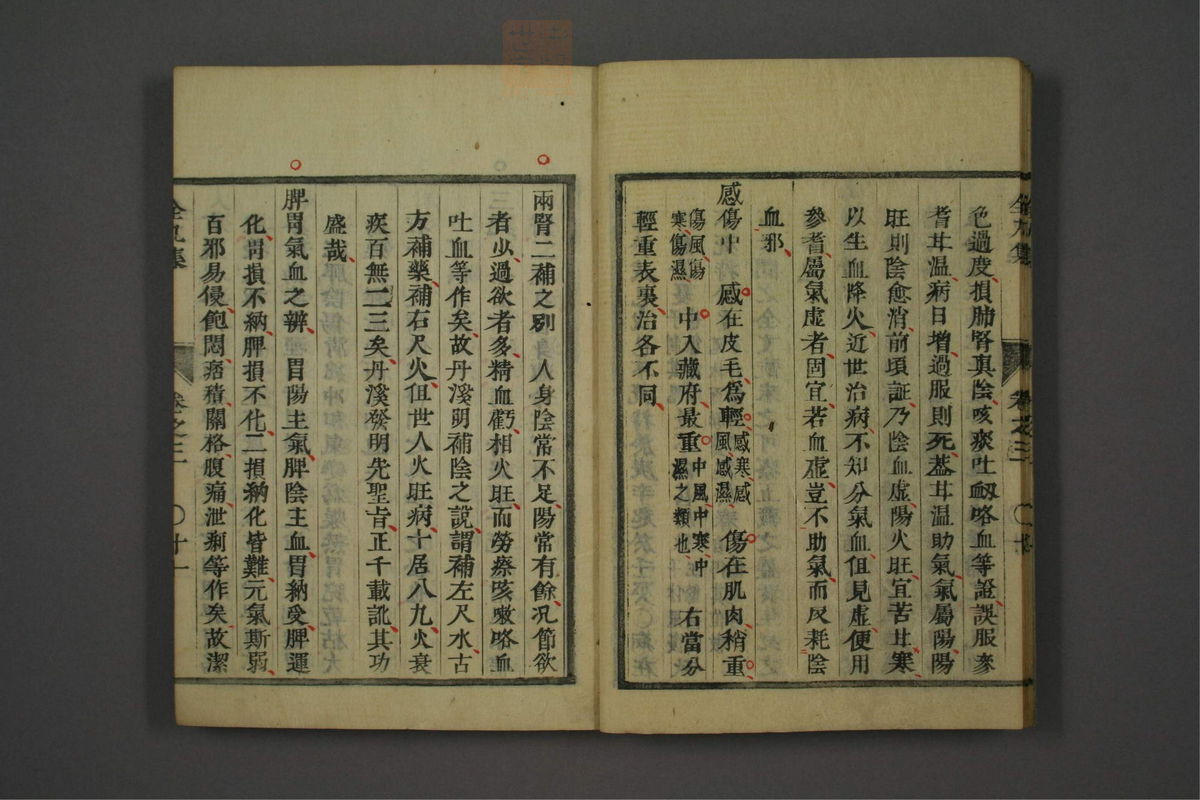 色過度損肺腎真陰咳痰吐衂咯血等證誤服參
耆甘温病日增過服則死葢甘温助氣氣屬陽陽
旺則陰愈消前項証乃陰血虛陽火旺宜苦甘寒
以生血降火近世治病不知分氣血但見虛便用
參耆屬氣虛者固宜若血虛豈不助氣而反耗陰
血邪
感傷中 感在皮毛爲輕感寒感風感濕 傷在肌肉稍重
傷風傷寒傷濕 中入藏府最重中風中寒中濕之類也 右當分
輕重表裏治各不同
兩腎二補之別 人身陰常不足陽常有餘况節欲
者少過欲者多精血虧相火旺而勞瘵咳嗽咯血
吐血等作矣故丹溪明補陰之説謂補左尺水古
方補藥補右尺火但世人火旺病十居八九火衰
疾百無二三矣丹溪發明先聖肯正千載訛其功
盛哉
脾胃氣血之辨 胃陽主氣脾陰主血胃納受脾運
化胃損不納脾損不化二損納化皆難元氣斯弱
百邪易侵飽悶痞積關格腹痛泄痢等作矣故潔
全九集
卷之三 〇十一